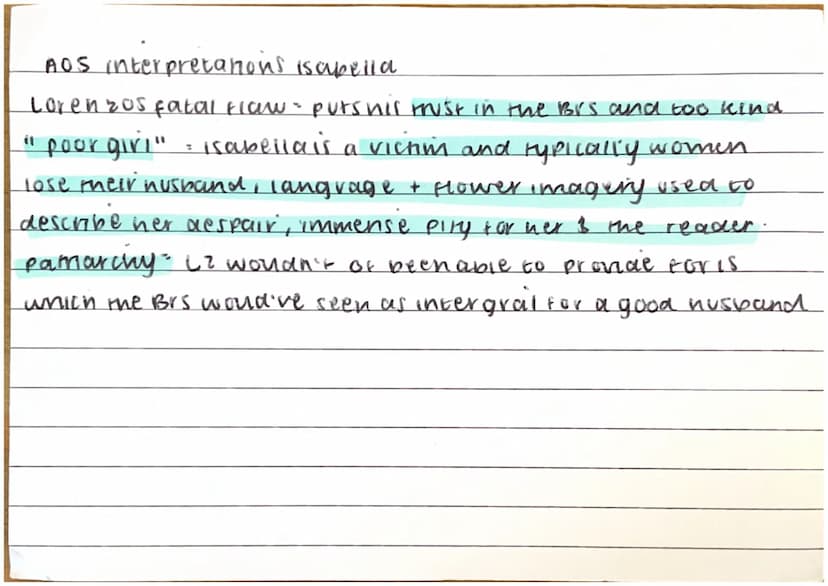 AO5 interpretations isabella
Lorenzos fatal flaw = puts his trust in the Brs and too kind
"poor girl" = isabella is a victim and typically women
lose their husband, language + flower imagery used to
describe her despair, immense pity for her & the reader.
patriarchy = LZ wouldn't of been able to provide for is
which the Brs would've seen as intergral for a good husband